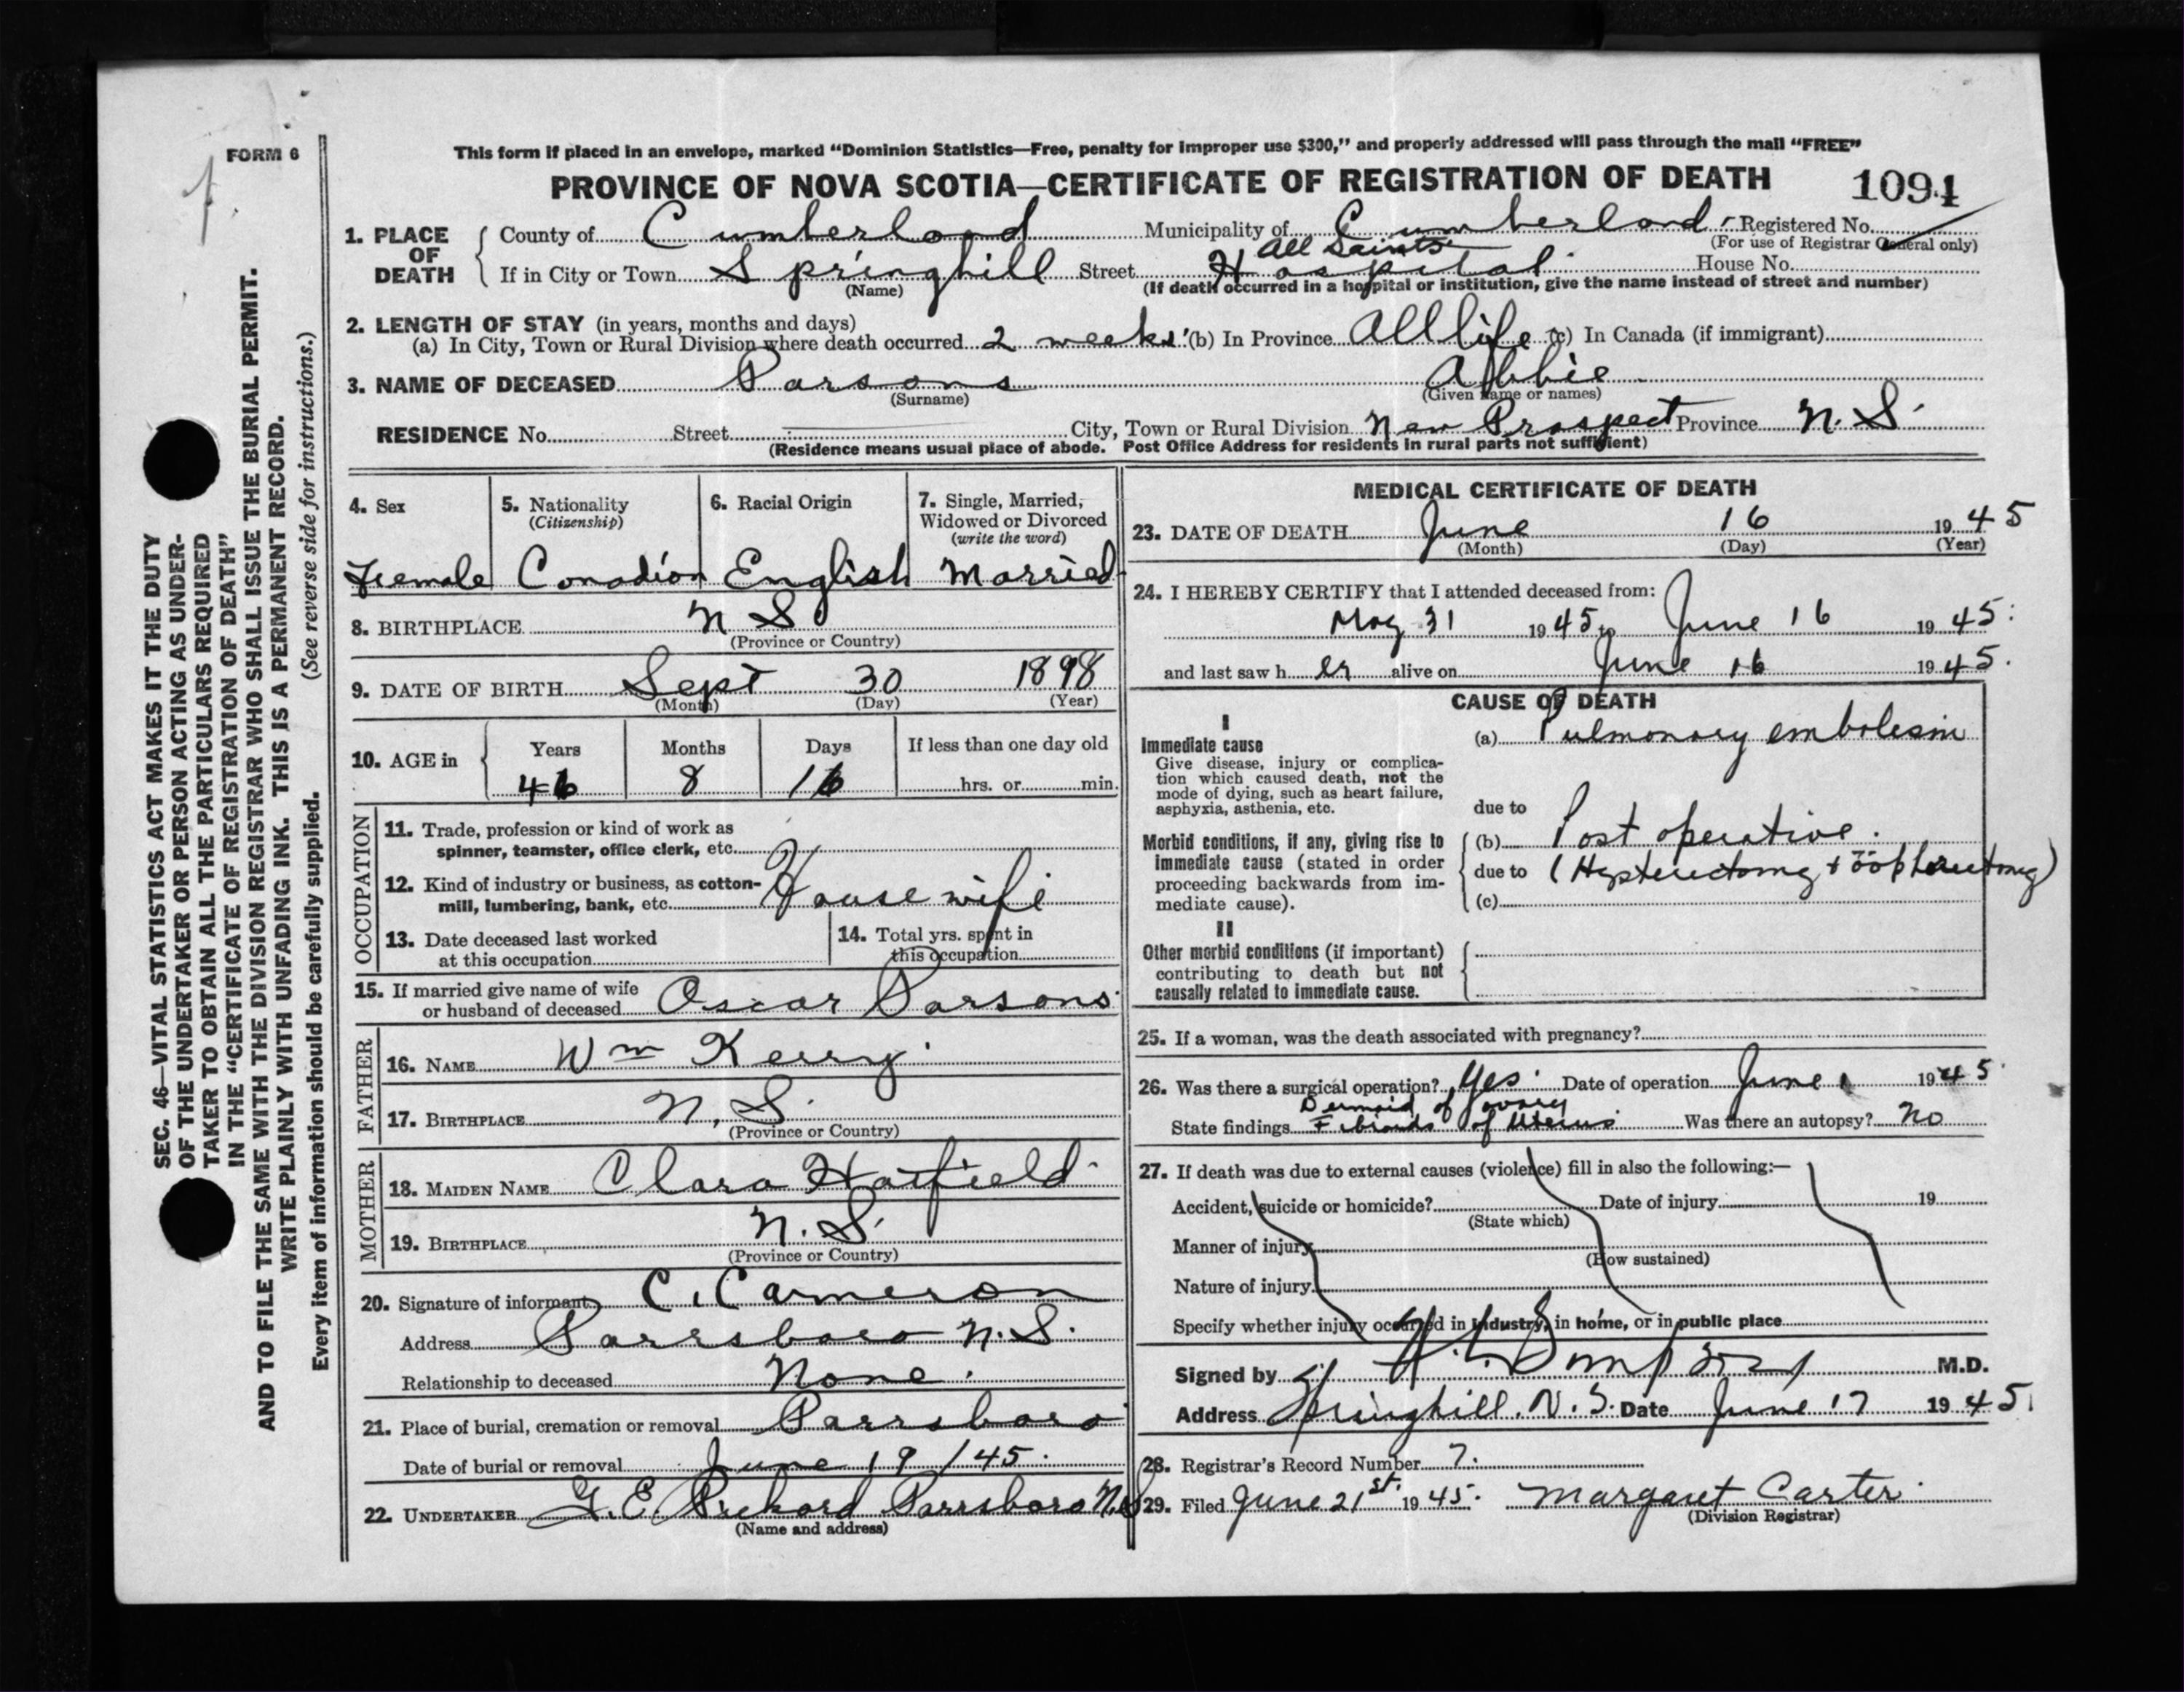 FORM 6
This form if placed in an envelope, marked "Dominion Statistics—Free, penalty for improper use $300," and properly addressed will pass through the mail "FREE"
PROVINCE OF NOVA SCOTIA—CERTIFICATE OF REGISTRATION OF DEATH 1094
1. PLACE OF DEATH
County of Cumberland Municipality of Cumberland Registered No.
(For use of Registrar General only)
All Saints
If in City or Town Springhill Street Hospital House No.
(Name) (If death occurred in a hospital or institution, give the name instead of street and number)
2. LENGTH OF STAY (in years, months and days)
(a) In City, Town or Rural Division where death occurred 2 weeks (b) In Province All life (c) In Canada (if immigrant)
3. NAME OF DECEASED Parsons Abbie
(Surname) (Given name or names)
RESIDENCE No. Street City, Town or Rural Division New Prospect Province N. S.
(Residence means usual place of abode. Post Office Address for residents in rural parts not sufficient)
4. Sex 5. Nationality (Citizenship) 6. Racial Origin 7. Single, Married, Widowed or Divorced (write the word)
Female Canadian English Married
8. BIRTHPLACE N S
(Province or Country)
9. DATE OF BIRTH Sept 30 1898
(Month) (Day) (Year)
10. AGE in Years Months Days If less than one day old
46 8 16 hrs. or min.
OCCUPATION
11. Trade, profession or kind of work as
spinner, teamster, office clerk, etc.
12. Kind of industry or business, as cotton-
mill, lumbering, bank, etc. Housewife
13. Date deceased last worked
at this occupation
14. Total yrs. spent in
this occupation
15. If married give name of wife
or husband of deceased Oscar Parsons
FATHER
16. NAME Wm Kerry
17. BIRTHPLACE N. S.
(Province or Country)
MOTHER
18. MAIDEN NAME Clara Hatfield
19. BIRTHPLACE N. S.
(Province or Country)
20. Signature of informant C. Cameron
Address Parrsboro N. S.
Relationship to deceased None.
21. Place of burial, cremation or removal Parrsboro
Date of burial or removal June 19/45.
22. UNDERTAKER Parrsboro N.S
(Name and address)
MEDICAL CERTIFICATE OF DEATH
23. DATE OF DEATH June 16 1945
(Month) (Day) (Year)
24. I HEREBY CERTIFY that I attended deceased from:
May 31 1945 to June 16 1945.
and last saw her alive on June 16 1945.
CAUSE OF DEATH
I
Immediate cause
Give disease, injury or complica-
tion which caused death, not the
mode of dying, such as heart failure,
asphyxia, asthenia, etc.
(a) Pulmonary embolism
due to
Morbid conditions, if any, giving rise to
immediate cause (stated in order
proceeding backwards from im-
mediate cause).
(b) Post operative.
due to (Hysterectomy + oöphorectomy)
(c)
II
Other morbid conditions (if important)
contributing to death but not
causally related to immediate cause.
25. If a woman, was the death associated with pregnancy?
26. Was there a surgical operation? Yes. Date of operation June 1 1945
Dermoid of ovary
State findings Fibroids of Uterus Was there an autopsy? No
27. If death was due to external causes (violence) fill in also the following:—
Accident, suicide or homicide? Date of injury 19
(State which)
Manner of injury
(How sustained)
Nature of injury
Specify whether injury occurred in industry, in home, or in public place
Signed by M.D.
Address Springhill. N. S. Date June 17 1945.
28. Registrar's Record Number 7.
29. Filed June 21st. 1945. Margaret Carter
(Division Registrar)
SEC. 46—VITAL STATISTICS ACT MAKES IT THE DUTY
OF THE UNDERTAKER OR PERSON ACTING AS UNDER-
TAKER TO OBTAIN ALL THE PARTICULARS REQUIRED
IN THE "CERTIFICATE OF REGISTRATION OF DEATH"
AND TO FILE THE SAME WITH THE DIVISION REGISTRAR WHO SHALL ISSUE THE BURIAL PERMIT.
WRITE PLAINLY WITH UNFADING INK. THIS IS A PERMANENT RECORD.
Every item of information should be carefully supplied. (See reverse side for instructions.)